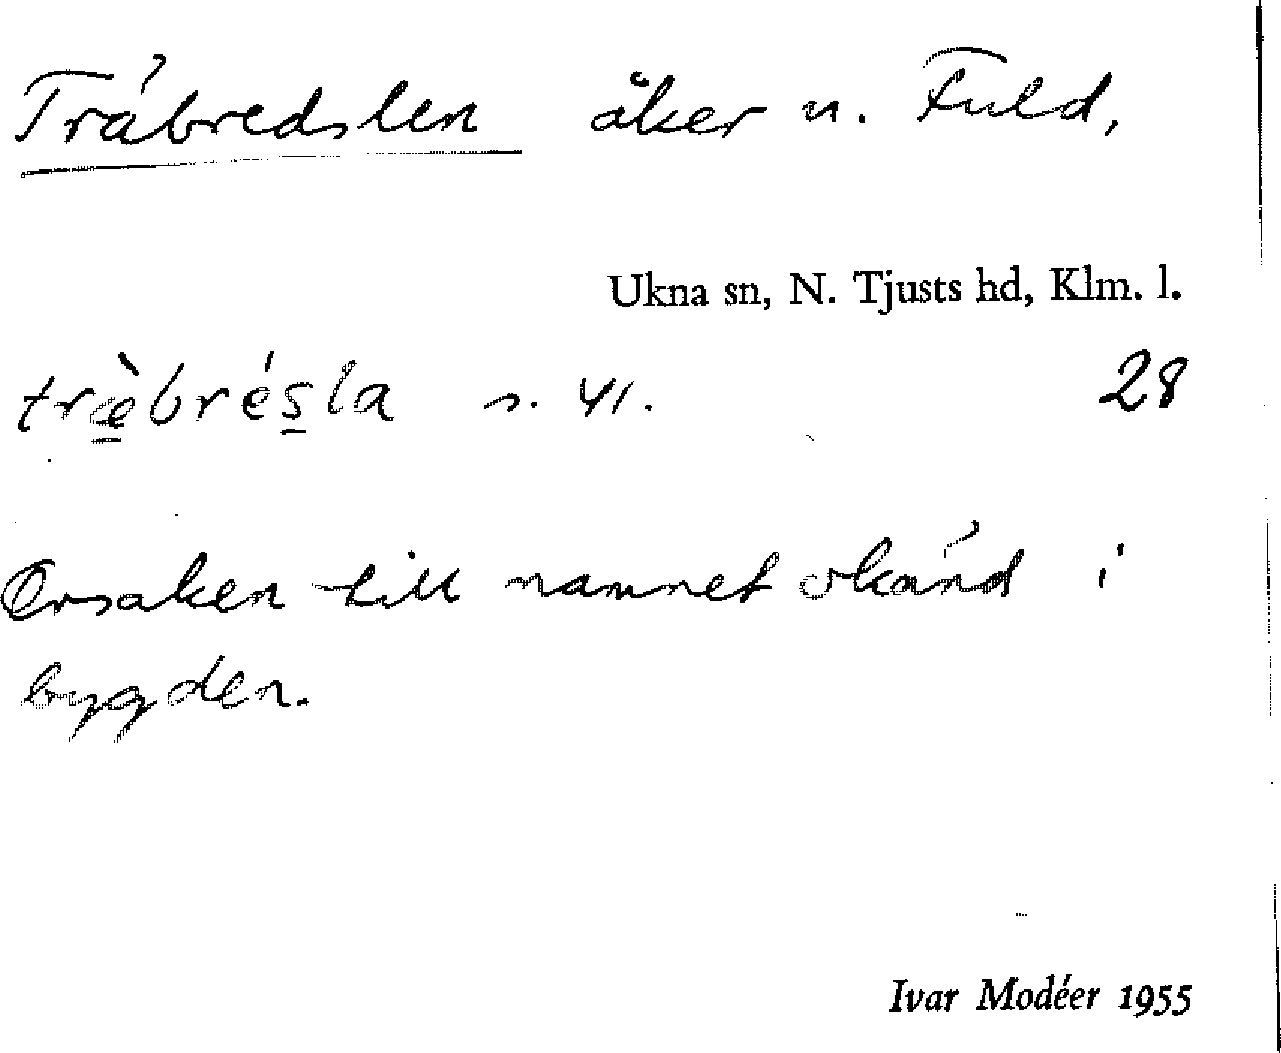 Träbredslen åker u. Fuld,
Ukna sn, N. Tjusts hd, Klm. l.
træ̀brésla s. 41. 28
Orsaken till namnet okänd i
bygden.
Ivar Modéer 1955